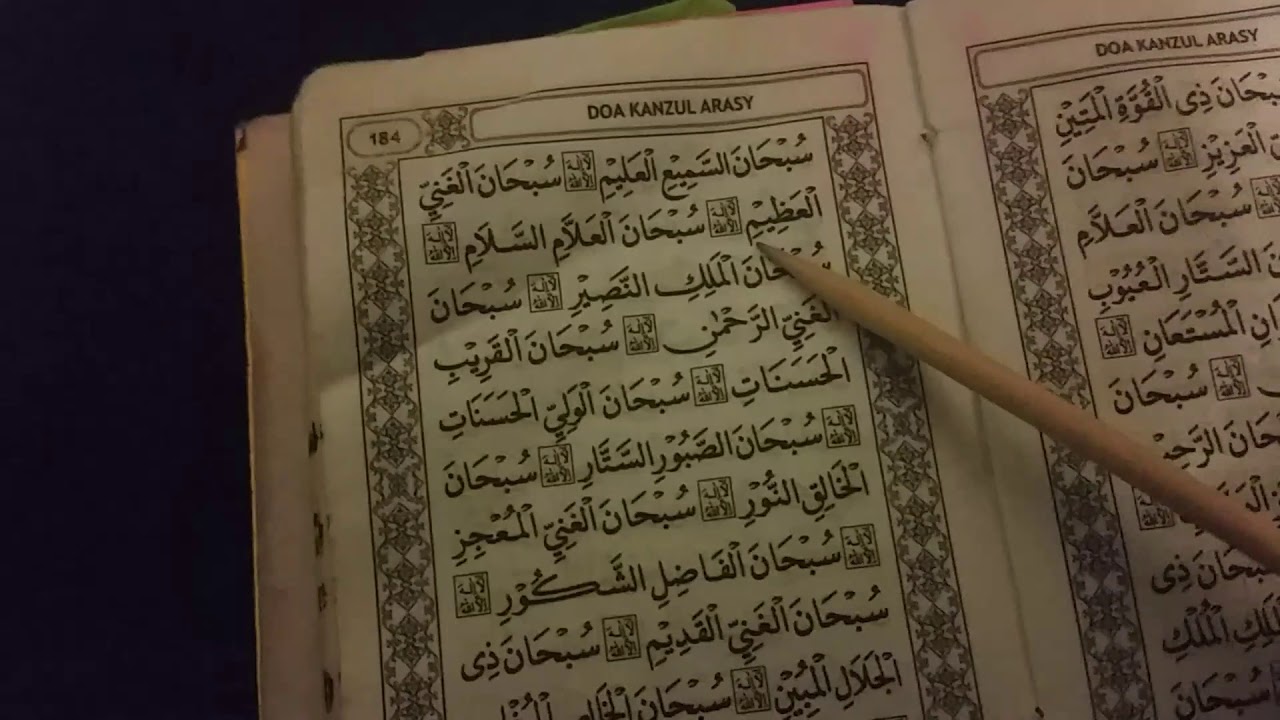 DOA KANZUL ARASY
184
سُبْحَانَ السَّمِيْعِ الْعَلِيْمِ لَا إِلٰهَ إِلَّا اللهُ سُبْحَانَ الْغَنِيِّ
الْعَظِيْمِ لَا إِلٰهَ إِلَّا اللهُ سُبْحَانَ الْعَلَّامِ السَّلَامِ لَا إِلٰهَ إِلَّا اللهُ
سُبْحَانَ الْمَلِكِ النَّصِيْرِ لَا إِلٰهَ إِلَّا اللهُ سُبْحَانَ
الْغَنِيِّ الرَّحْمٰنِ لَا إِلٰهَ إِلَّا اللهُ سُبْحَانَ الْقَرِيْبِ
الْحَسَنَاتِ لَا إِلٰهَ إِلَّا اللهُ سُبْحَانَ الْوَلِيِّ الْحَسَنَاتِ
لَا إِلٰهَ إِلَّا اللهُ سُبْحَانَ الصَّبُوْرِ السَّتَّارِ لَا إِلٰهَ إِلَّا اللهُ سُبْحَانَ
الْخَالِقِ النُّوْرِ لَا إِلٰهَ إِلَّا اللهُ سُبْحَانَ الْغَنِيِّ الْمُعْجِزِ
لَا إِلٰهَ إِلَّا اللهُ سُبْحَانَ الْفَاضِلِ الشَّكُوْرِ لَا إِلٰهَ إِلَّا اللهُ
سُبْحَانَ الْغَنِيِّ الْقَدِيْمِ لَا إِلٰهَ إِلَّا اللهُ سُبْحَانَ ذِى
الْجَلَالِ الْمُبِيْنِ لَا إِلٰهَ إِلَّا اللهُ سُبْحَانَ
DOA KANZUL ARASY
سُبْحَانَ ذِى الْقُوَّةِ الْمَتِيْنِ
الْعَزِيْزِ لَا إِلٰهَ إِلَّا اللهُ سُبْحَانَ
لَا إِلٰهَ إِلَّا اللهُ سُبْحَانَ الْعَلَّامِ
السَّتَّارِ الْعُيُوْبِ
الْمُسْتَعَانِ لَا إِلٰهَ إِلَّا اللهُ
لَا إِلٰهَ إِلَّا اللهُ سُبْحَانَ
لَا إِلٰهَ إِلَّا اللهُ
ذِى
الْمُلْكِ
سُبْحَانَ